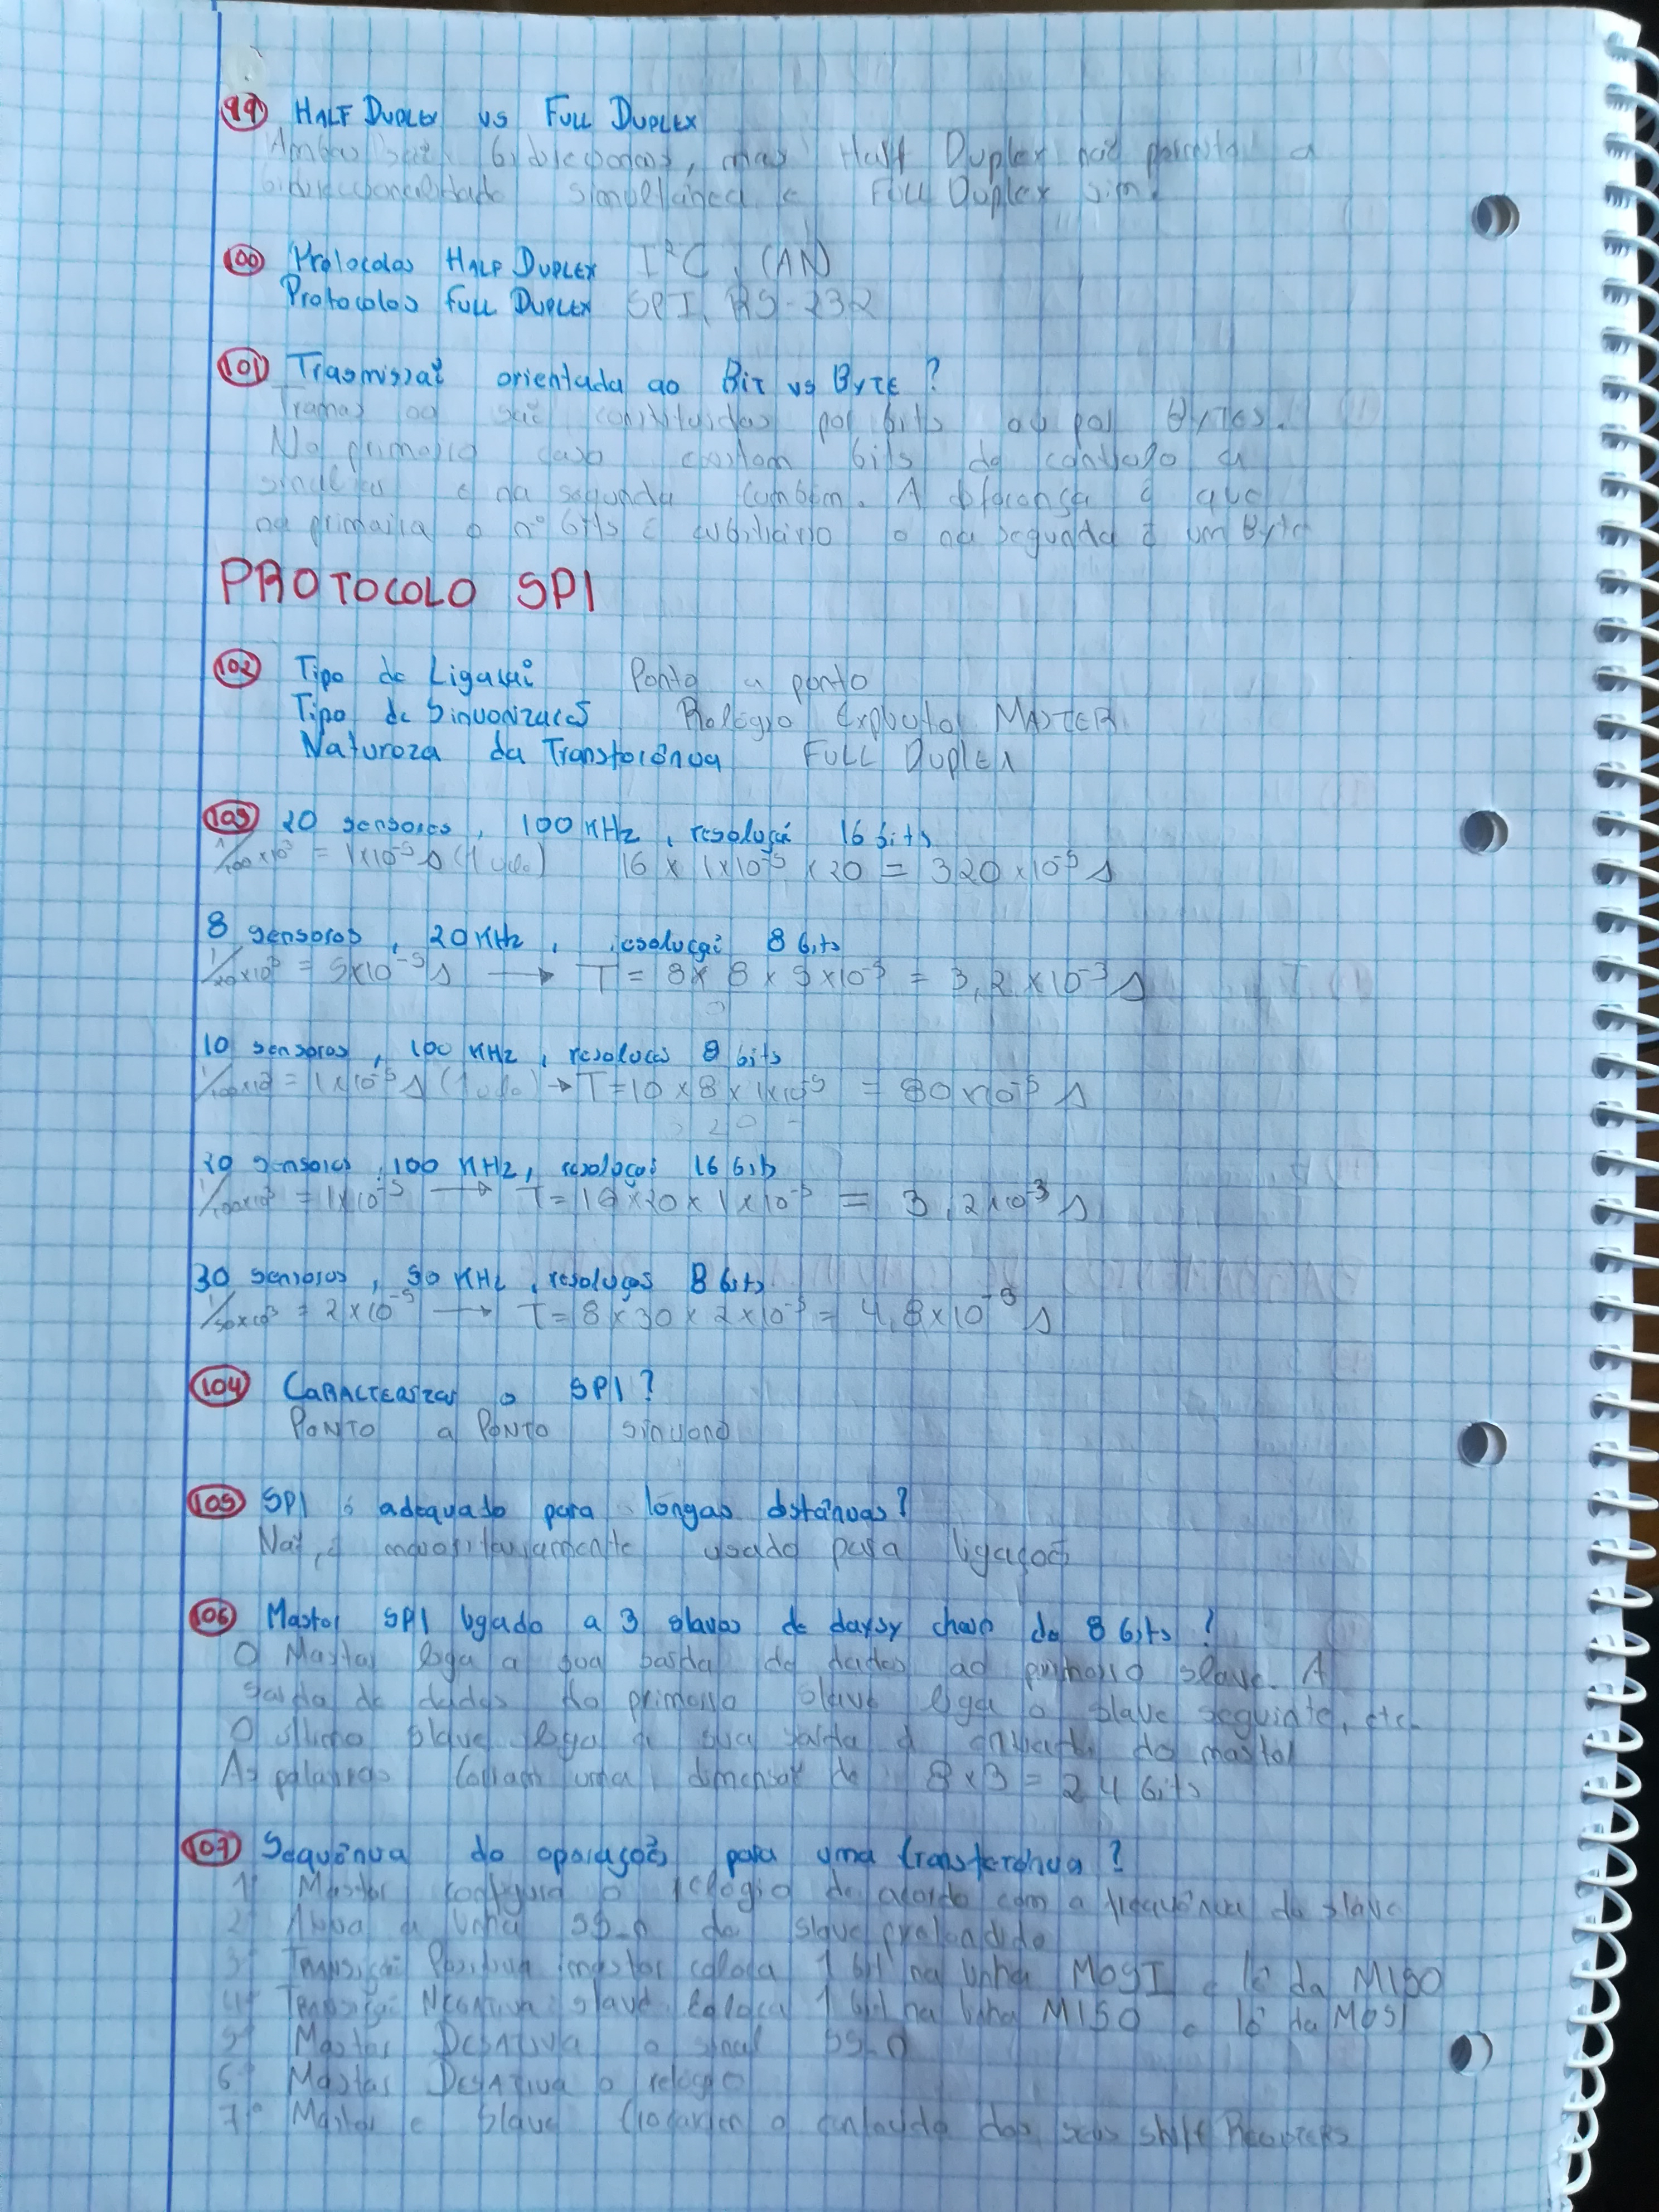 99 HALF DUPLEX vs FULL DUPLEX
Ambas são bidirecionais, mas Half Duplex não permite a
bidirecionalidade simultânea e FULL Duplex sim.
100 Protocolos HALF DUPLEX I²C, CAN
Protocolos FULL DUPLEX SPI, RS-232
101 Trasmissaõ orientada ao BIT vs BYTE?
Tramas ou são constituídas por bits ou por BYTES.
No primeiro caso existem bits de controlo e
e na segunda também. A diferença é que
na primeira o nº bits é o na segunda é um Byte
PROTOCOLO SPI
102 Tipo de Ligação Ponto a ponto
Tipo de Sincronização Relógio Explícito MASTER
Natureza da Transferência FULL DUPLEX
103 20 sensores, 100 KHz, resolução 16 bits
1/100×10³ = 1×10⁻⁵ s (1 ciclo) 16 × 1×10⁻⁵ × 20 = 320×10⁻⁵ s
8 sensores, 20 KHz, resolução 8 bits
1/20×10³ = 5×10⁻⁵ s → T = 8 × 8 × 5×10⁻⁵ = 3,2×10⁻³ s
10 sensores, 100 KHz, resolução 8 bits
1/100×10³ = 1×10⁻⁵ s (1 ciclo) → T = 10 × 8 × 1×10⁻⁵ = 80×10⁻⁵ s
20 sensores, 100 KHz, resolução 16 bits
1/100×10³ = 1×10⁻⁵ → T = 16×20×1×10⁻⁵ = 3,2×10⁻³ s
30 sensores, 50 KHz, resolução 8 bits
1/50×10³ = 2×10⁻⁵ → T = 8×30×2×10⁻⁵ = 4,8×10⁻³ s
104 CARACTERIZAR o SPI?
PONTO a PONTO síncrono
105 SPI é adequado para longas distâncias?
Não, é usado para ligações
106 Master SPI ligado a 3 slaves de daysy chain de 8 bits?
O Master liga a sua saida de dados ao primeiro slave. A
saida de dados do primeiro slave liga o slave seguinte, etc.
O último slave liga a sua saida à entrada do master
As palavras uma dimensão de 8×3 = 24 bits
107 Sequência de operações para uma transferência?
1º Master configura o relógio de acordo com a frequência do slave
2º Ativa a linha SS_n do slave pretendido
3º Transição Positiva master coloca 1 bit na linha MOSI e lê da MISO
4º Transição NEGATIVA: slave coloca 1 bit na linha MISO e lê da MOSI
5º Master DESATIVA o sinal SS_n
6º Master DESATIVA o relógio
7º Master e Slave trocaram o conteudo dos seus shift